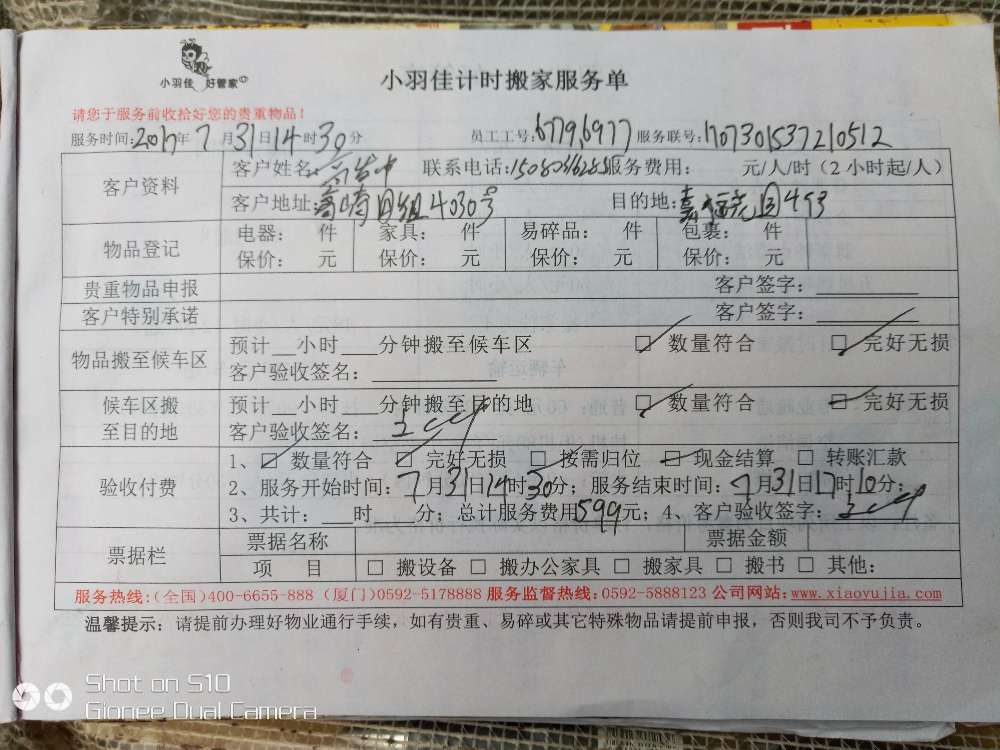 小羽佳 好管家
小羽佳计时搬家服务单
请您于服务前收拾好您的贵重物品！
服务时间：2017年7月31日14时30分 员工工号：6779,6977 服务联号：1707301537210512
客户资料
客户姓名： 联系电话： 服务费用： 元/人/时（2小时起/人）
客户地址： 4030号 目的地： 园493
物品登记
电器： 件 家具： 件 易碎品： 件 包裹： 件
保价： 元 保价： 元 保价： 元 保价： 元
贵重物品申报 客户签字：
客户特别承诺 客户签字：
物品搬至候车区
预计__小时___分钟搬至候车区 ☑ 数量符合 ☑ 完好无损
客户验收签名：
候车区搬至目的地
预计__小时___分钟搬至目的地 ☑ 数量符合 ☑ 完好无损
客户验收签名：
验收付费
1、☑ 数量符合 ☑ 完好无损 ☑ 按需归位 ☑ 现金结算 □ 转账汇款
2、服务开始时间：7月31日14时30分；服务结束时间：7月31日17时10分；
3、共计：___时 分；总计服务费用599元；4、客户验收签字：
票据栏
票据名称 票据金额
项 目 □ 搬设备 □ 搬办公家具 □ 搬家具 □ 搬书 □ 其他：
服务热线：(全国)400-6655-888 (厦门)0592-5178888 服务监督热线：0592-5888123 公司网站：www.xiaoyujia.com
温馨提示：请提前办理好物业通行手续，如有贵重、易碎或其它特殊物品请提前申报，否则我司不予负责。
Shot on S10
Gionee Dual Camera